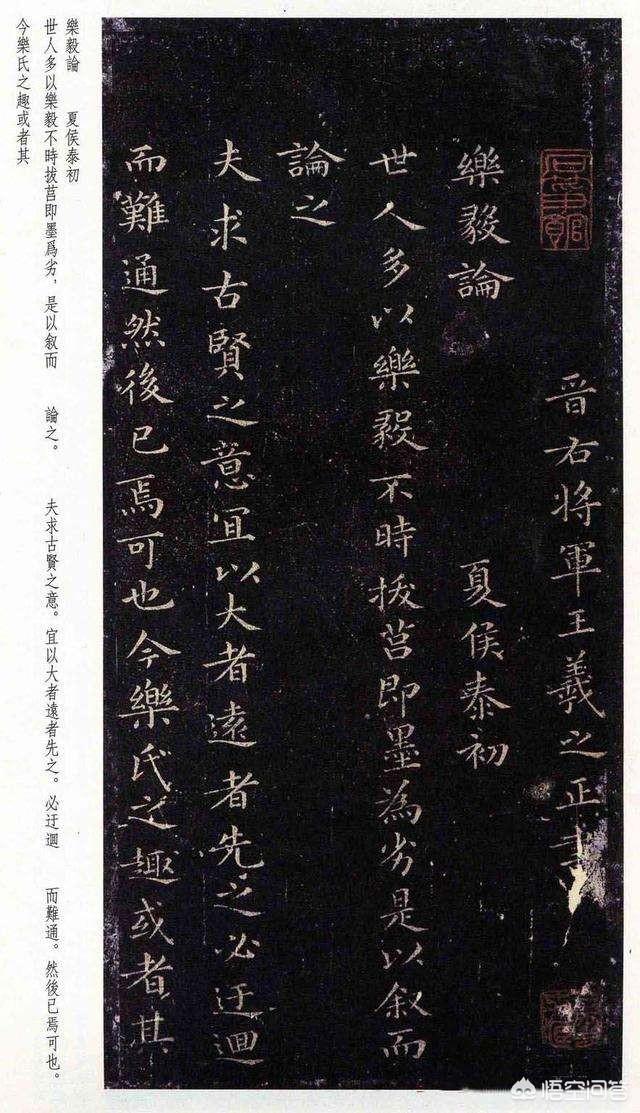 晋右将軍王羲之正書
樂毅論 夏侯泰初
世人多以樂毅不時拔莒即墨為劣是以叙而
論之
夫求古賢之意宜以大者遠者先之必迂迴
而難通然後已焉可也今樂氏之趣或者其
樂毅論 夏侯泰初
世人多以樂毅不時拔莒即墨爲劣，是以叙而 論之。 夫求古賢之意。宜以大者遠者先之。必迂迴 而難通。然後已焉可也。
今樂氏之趣或者其
悟空问答